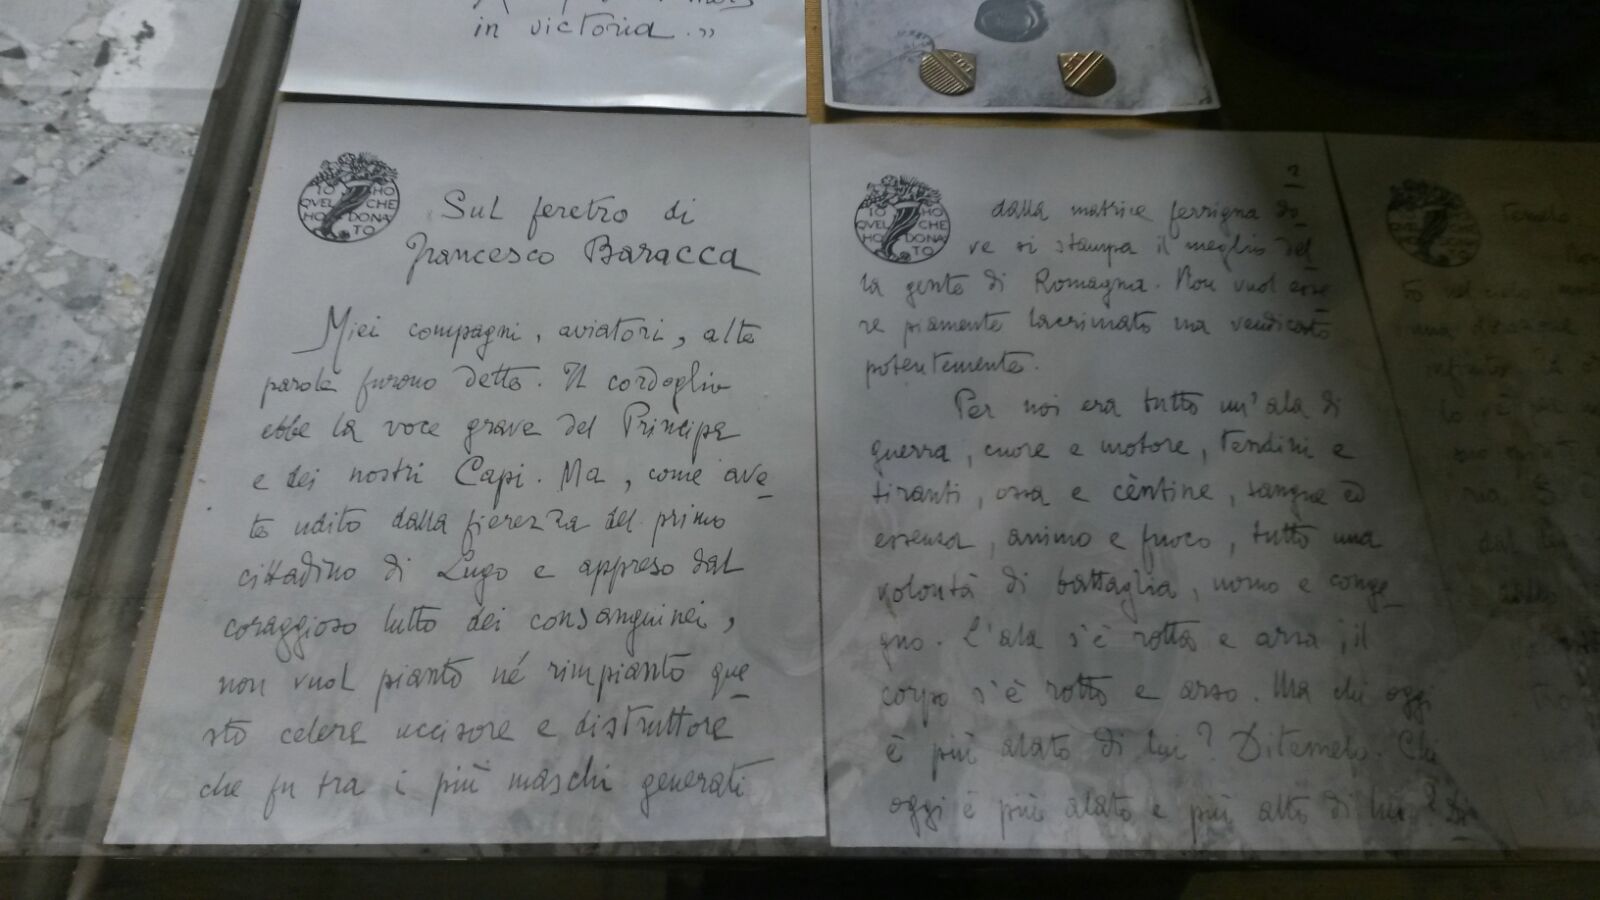 in victoria.»
IO HO
QVEL CHE
HO DONA
TO
Sul feretro di
Francesco Baracca
Miei compagni, aviatori, alte
parole furono dette. Il cordoglio
ebbe la voce grave del Principe
e dei nostri Capi. Ma, come ave-
te udito dalla fierezza del primo
cittadino di Lugo e appreso dal
coraggioso lutto dei consanguinei,
non vuol pianto né rimpianto que-
sto celere uccisore e distruttore
che fu tra i più maschi generati
2
IO HO
QVEL CHE
HO DONA
TO
dalla matrice ferrigna do-
ve si stampa il meglio del-
la gente di Romagna. Non vuol esse-
re piamente lacrimato ma vendicato
potentemente.
Per noi era tutto un'ala di
guerra, cuore e motore, tendini e
tiranti, ossa e cèntine, sangue ed
essenza, animo e fuoco, tutto una
volontà di battaglia, uomo e conge-
gno. L'ala s'è rotta e arsa; il
corpo s'è rotto e arso. Ma chi oggi
è più alato di lui? Ditemelo. Chi
oggi è più alato e più alto di lui? Di-